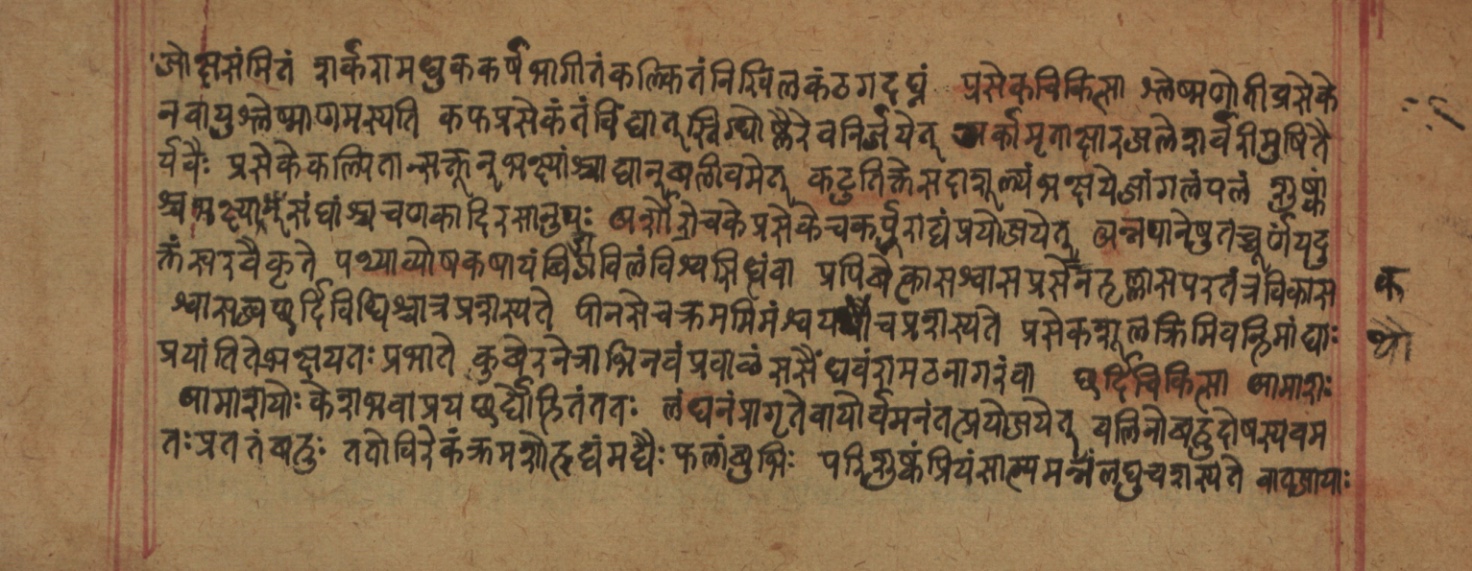 ओक्षसंमितं शर्करामधुककर्षभागीतंकल्कितंनिखिलकंठगदघ्नं प्रसेकचिकित्सा श्लेष्मणोतीप्रसेके
नवायुश्लेष्माणमस्यति कफप्रसेकंतंविद्यात् स्निग्धोष्णैरेवनिर्जयेत् अर्कामृताक्षारजलेशर्वरीमुषितै
र्यवैः प्रसेकेकल्पितान्सक्तून्भक्ष्यांश्चाद्यान्बलीवमेत् कटुतिक्तेसदाशूल्यंभक्षयेज्जांगलंपलं शुष्कां
श्चभक्ष्यान् संघांश्चचणकादिरसानुपः अर्शोरोचकेप्रसेकेचकर्पूराद्यंप्रयोजयेत् अन्नपानेषुतच्चूर्णंयदु
क्तंस्वरवैकृते पथ्याव्योषकषायं विडविलंविश्वसिद्धंवा प्रपिबेत्कासश्वासप्रसेनहृल्लासपरतंत्रेविकास
श्वासछर्दिविधिश्चात्रप्रशस्यते पीनसेचक्रममिमंश्वय चप्रशस्यते प्रसेकशूलक्रिमिवन्हिमांद्याः
प्रयांतितेभक्षयतःप्रभाते कुबेरनेत्राभिनवंप्रवाळंससैंधवंरामठनागरंवा छर्दिचिकित्सा आमाशः
आमाशयोःकेशभवाप्रयछर्द्योहितंततः लंघनंप्रागृतेवायोर्वमनंतत्प्रयोजयेत् बलिनोबहुदोषस्यवम
तःप्रततंबहुः ततोविरेकंक्रमशोहृद्यंमद्यैःफलांबुभिः परिशुष्कंप्रियंसात्म्यमन्नंलघुचशस्यते वातजायाः
क